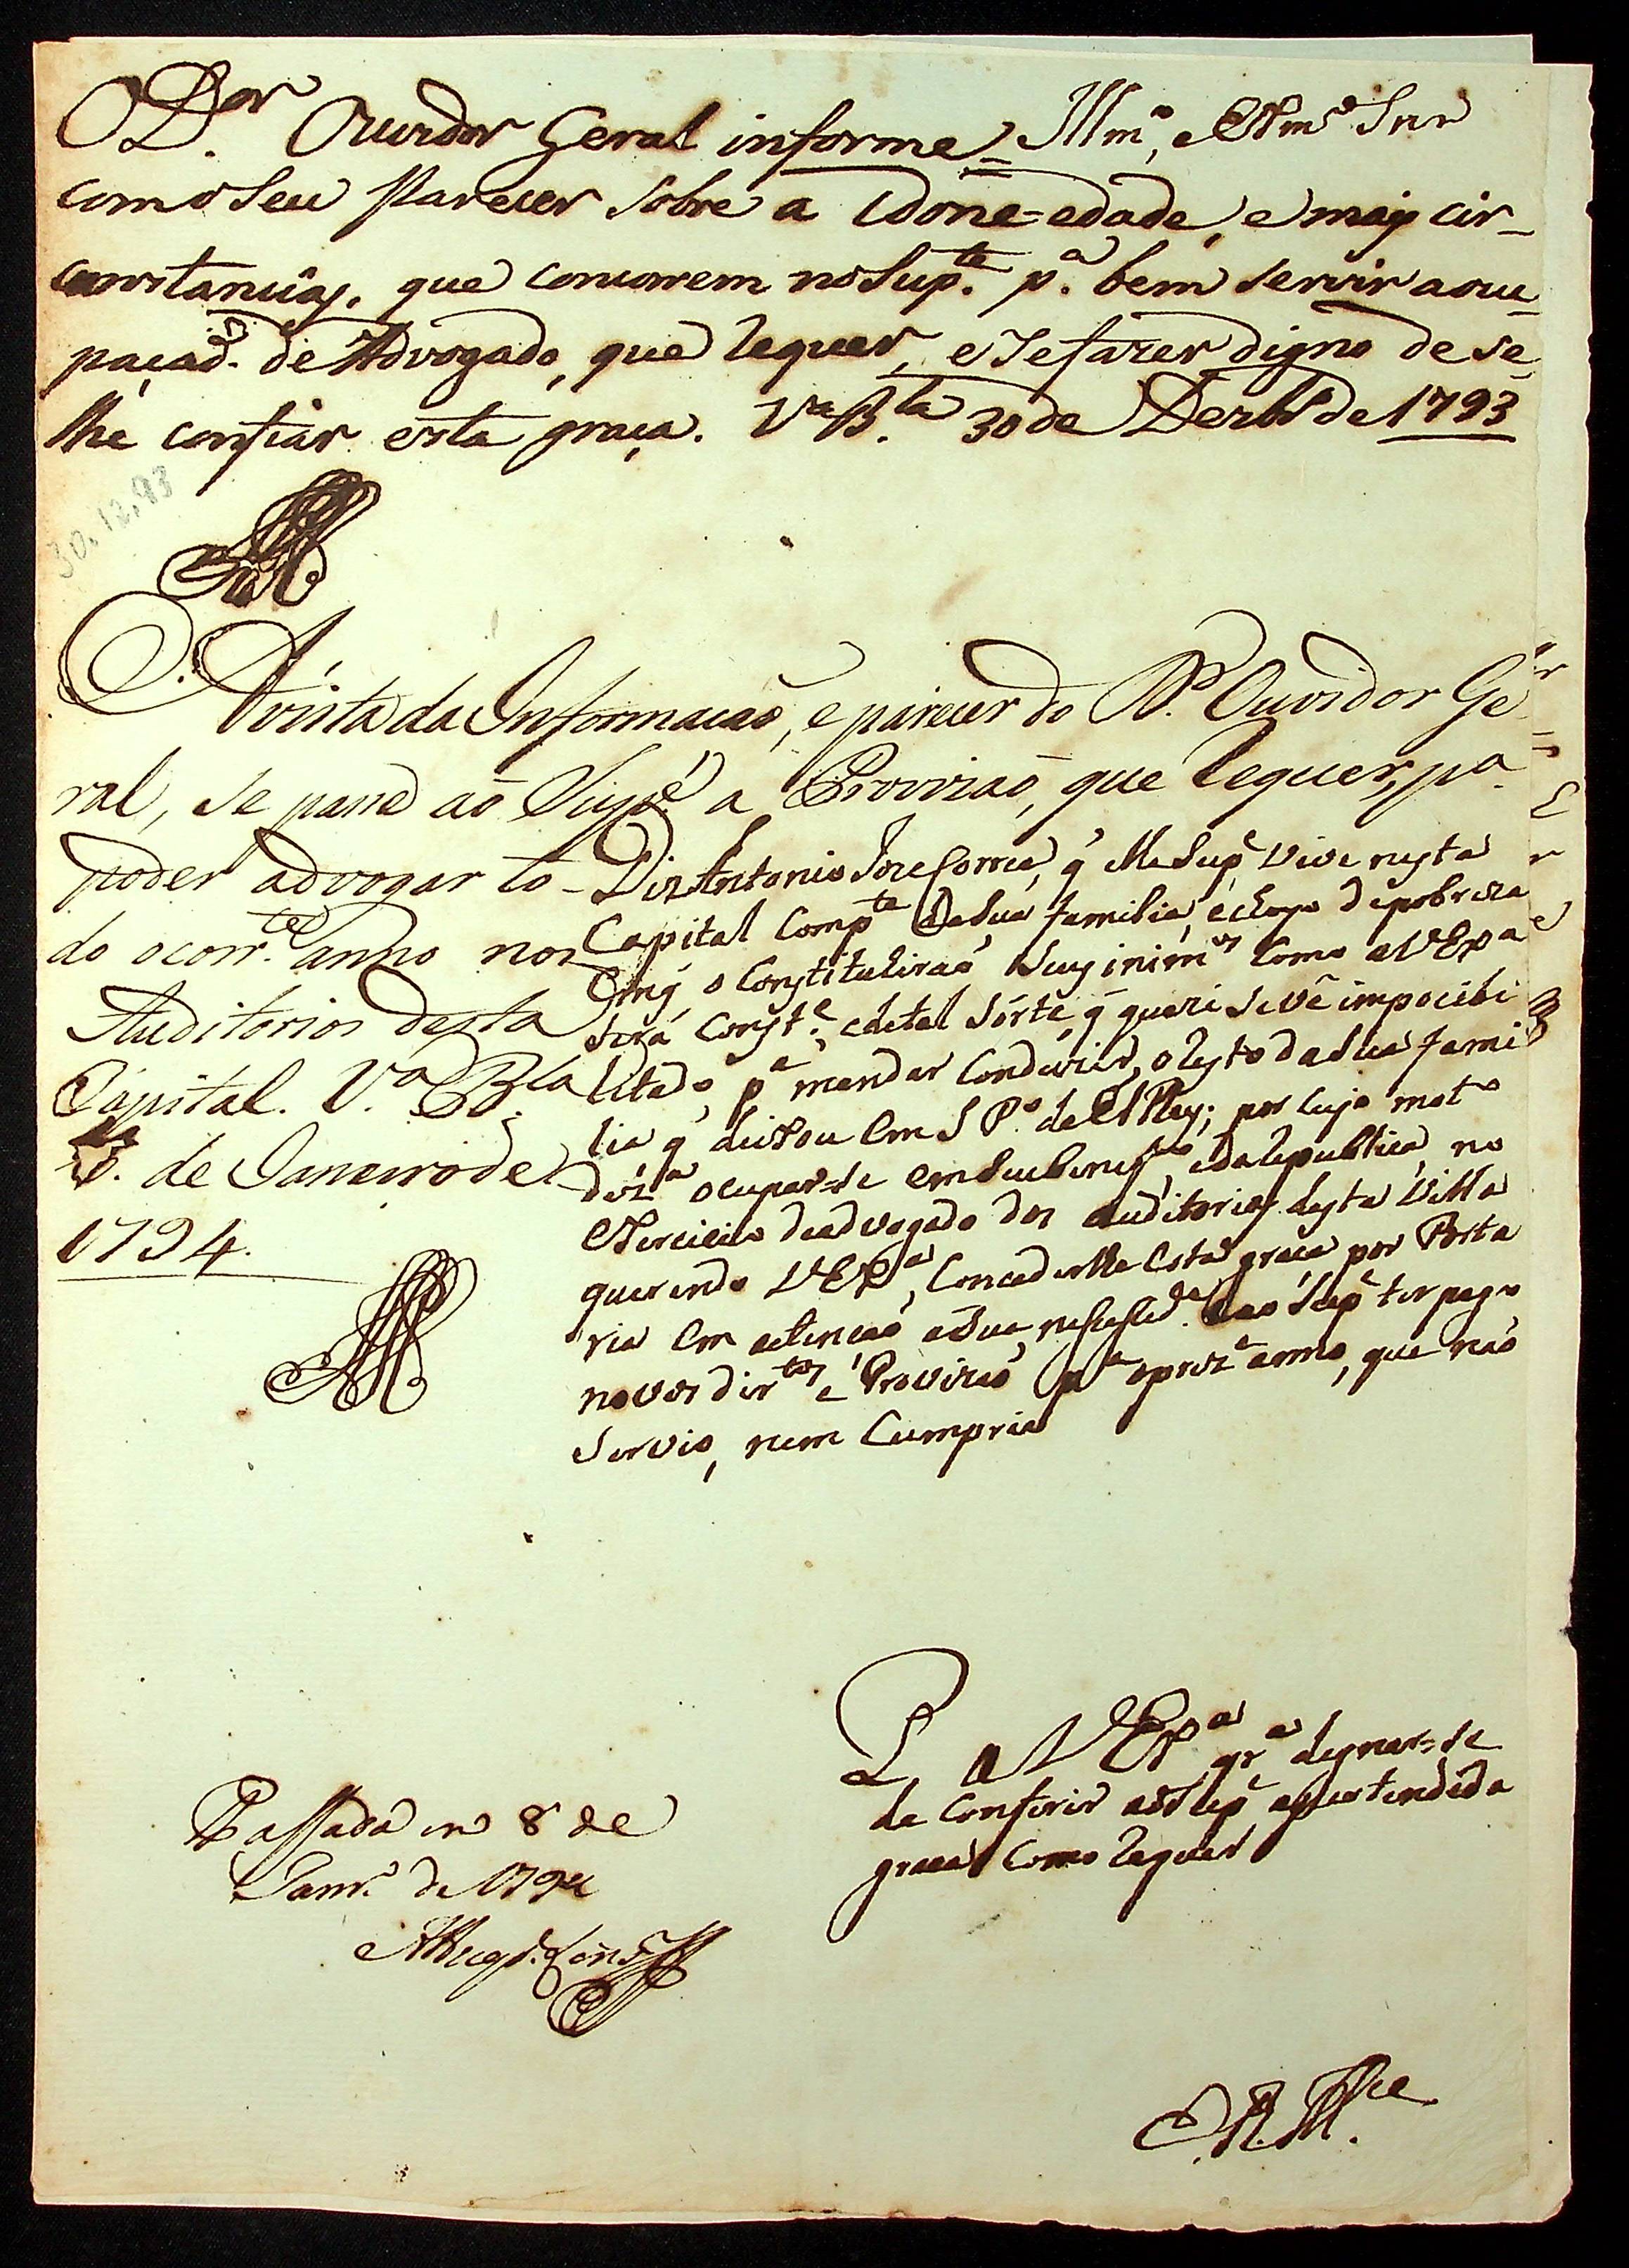 O D.or Ouvidor Geral informe
Illm.o, e Exm.o Snr
com o Seu Parecer Sobre a Idone=edade, e mais cir_
cunstancias, que concorrem no Sup.te p.a bem Servir a ocu_
paçaõ de Advogado, que requer, e Se fazer digno de se
lhe confiar esta graça. V.a B.la 30 de Dezbr.o de 1793
30.12.93
Á vista da Informacaõ, e parecer do D.or Ouvidor Ge
ral, Se passe ao Supp.e a Provizaõ, que requer, p.a
poder advogar to_
do o corr.te anno nos
Auditorios desta
Capital. V.a B.la
de Janeiro de
1794.
Diz Antonio Joze Correa, q̃ elle Sup.e vive nesta
Capital Comp.te da Sua familia, e chêyo de pobreza
em q̃ o Constituhiraõ Seus inim.os Como a V Ex.a
Será Const.e, e de tal Sorte, q̃ quazi Se vê impocibi
litado p.a mandar Conduzir, o resto da Sua fami
lia q̃ deixou em S P.o de El Rey; por Cujo mot.o
dez.a ocupar=se em Seu benef.o, e da republica, no
Exercicio de advogado dos auditorios desta Villa
querendo V Ex.a Conceder lhe Esta graça por Porta
ria em atencaõ a Sua nesesid.e e ao Sup.e ter pago
novos dir.tos e Provizaõ p.a o prez.e anno, que naõ
Servio, nem Cumprio
P. a V Ex.a gr.a dignar=se
de Conferir ao Sup.e a pertendida
graça Como requer
Passada em 8 de
Janr.o de 1794
E.R.M.ce